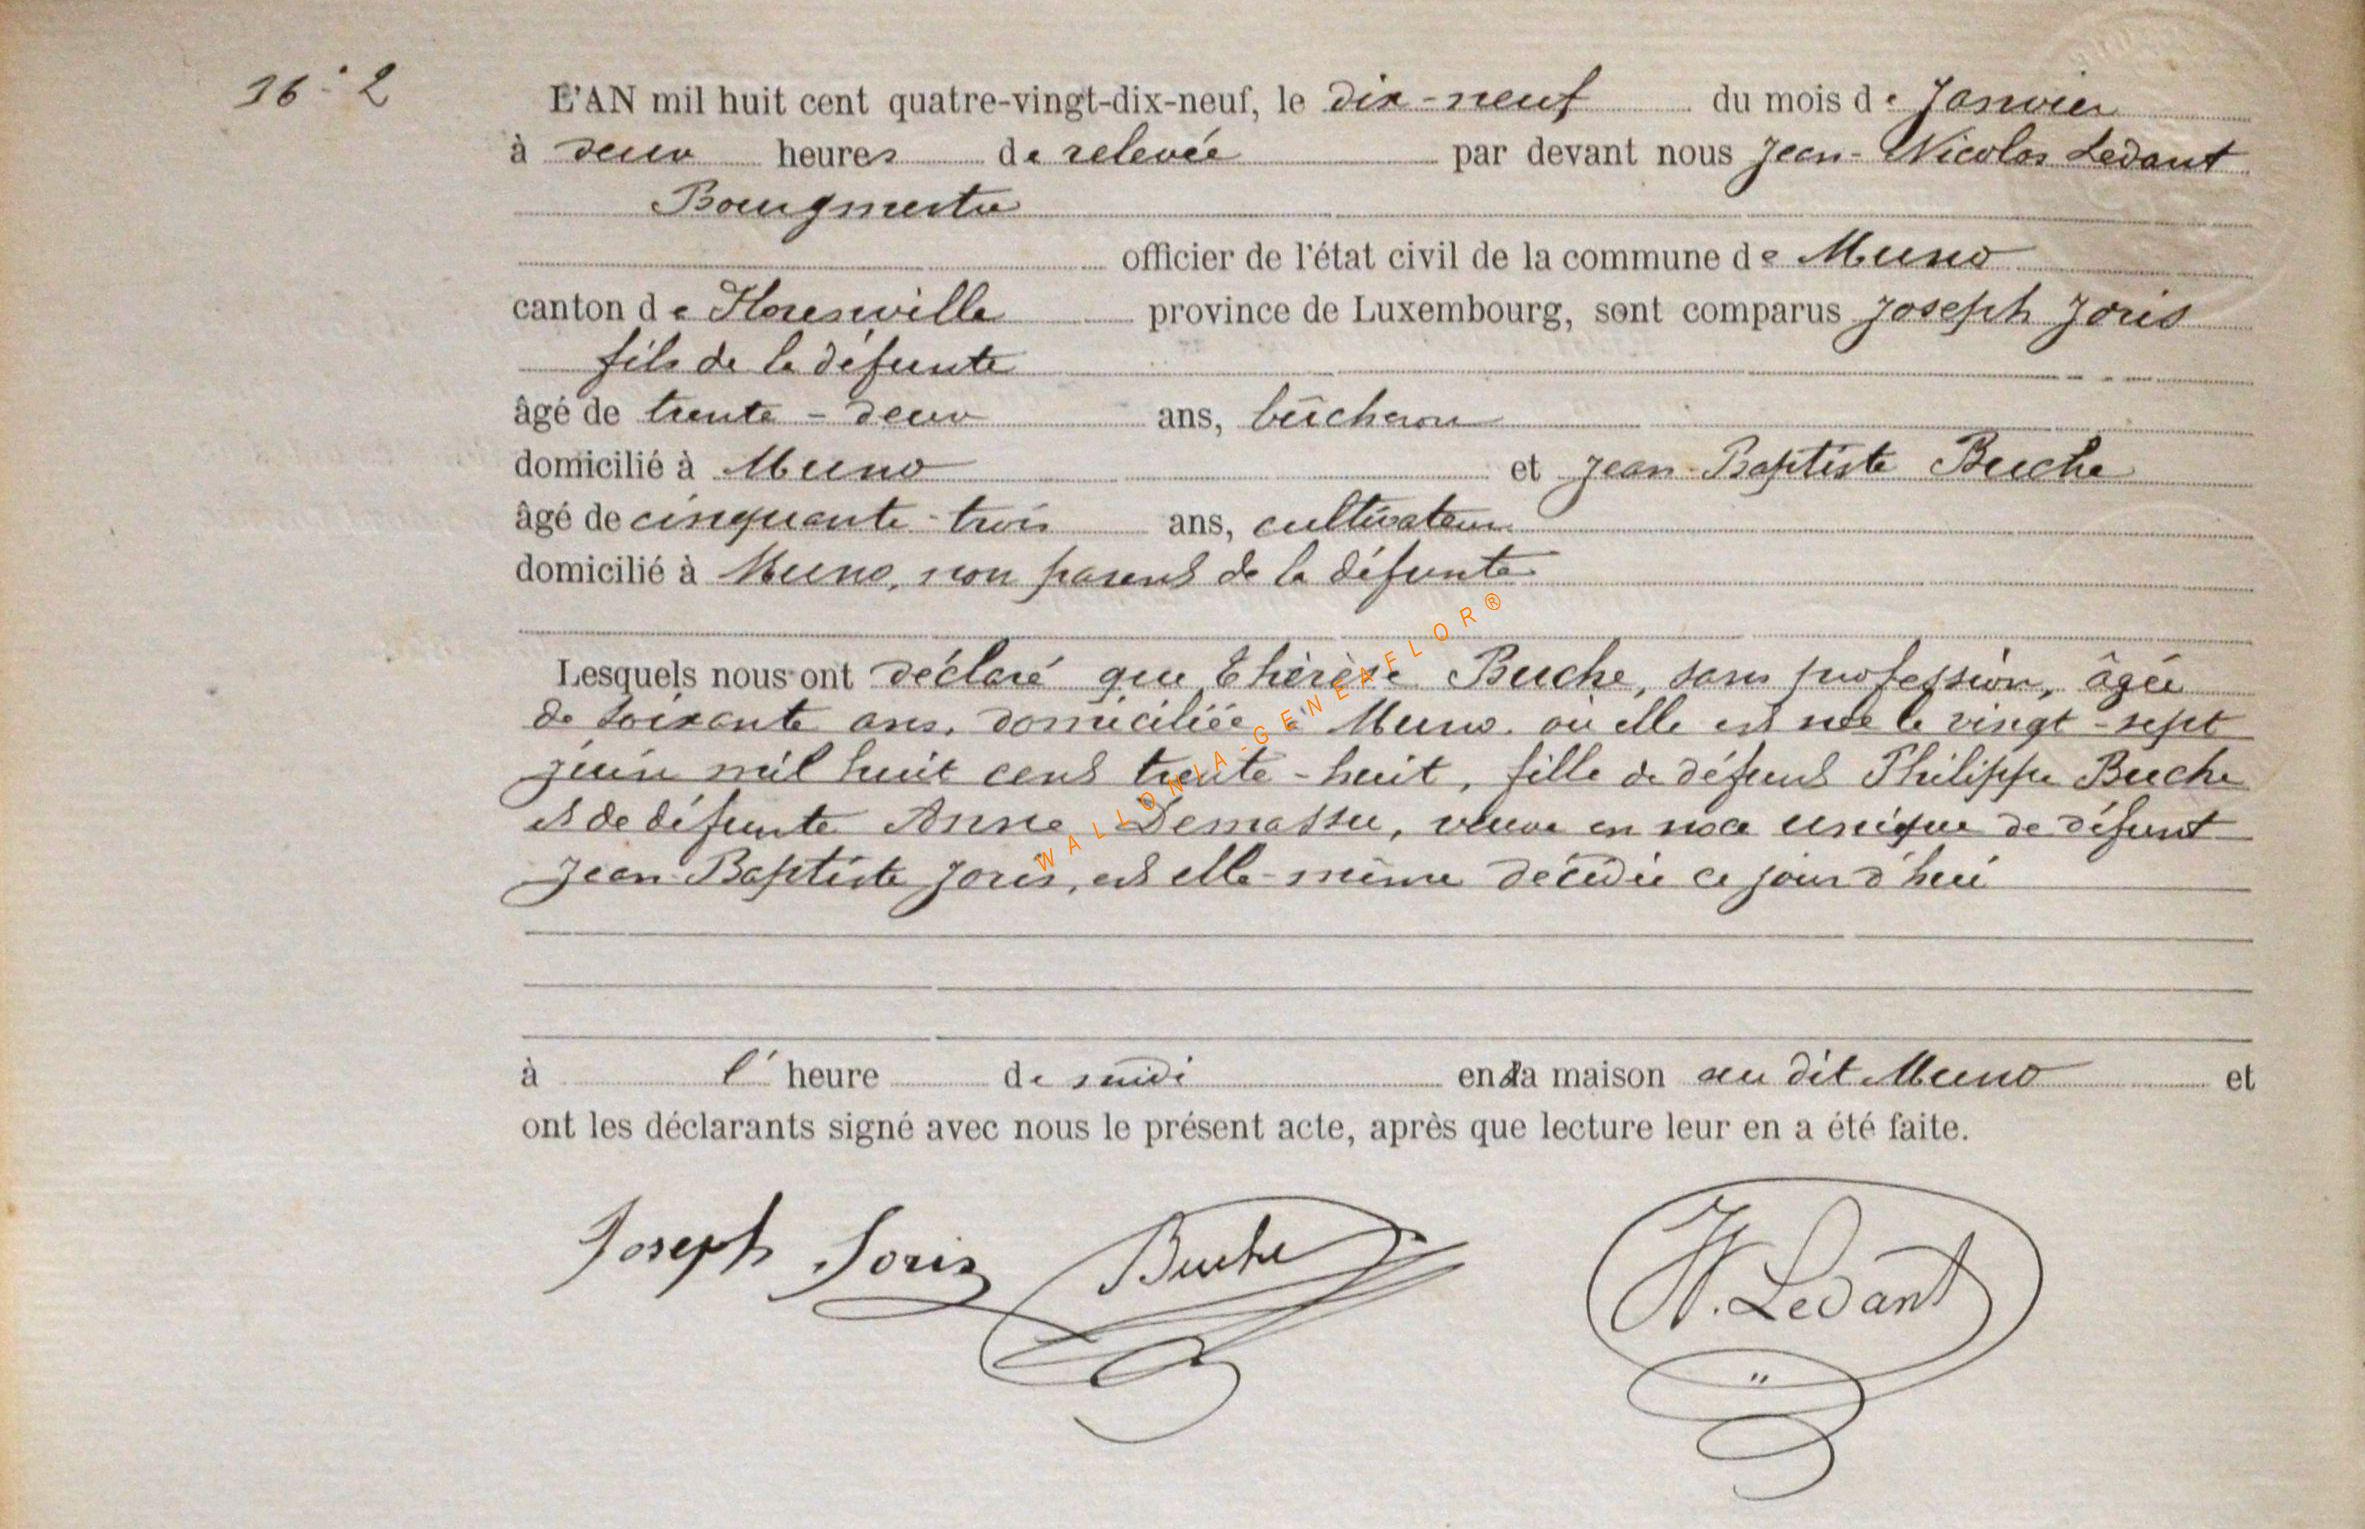 16 - 2
L'AN mil huit cent quatre-vingt-dix-neuf, le dix-neuf du mois de Janvier
à deux heures de relevée par devant nous Jean-Nicolas Ledant
Bourgmestre
officier de l'état civil de la commune de Muno
canton de Florenville province de Luxembourg, sont comparus Joseph Joris
fils de la défunte
âgé de trente-deux ans, bûcheron
domicilié à Muno et Jean-Baptiste Buche
âgé de cinquante-trois ans, cultivateur
domicilié à Muno, non parent de la défunte
Lesquels nous ont déclaré que Thérèse Buche, sans profession, âgée
de soixante ans, domiciliée à Muno où elle est née le vingt-sept
juin mil huit cent trente-huit, fille de défunt Philippe Buche
et de défunte Anne Demasse, veuve en noce unique de défunt
Jean-Baptiste Joris, est elle-même décédée ce jour d'hui
à l' heure de midi en sa maison au dit Muno et
ont les déclarants signé avec nous le présent acte, après que lecture leur en a été faite.
Joseph Joris Buche N. Ledant
WALLONIA-GENEAFLOR®